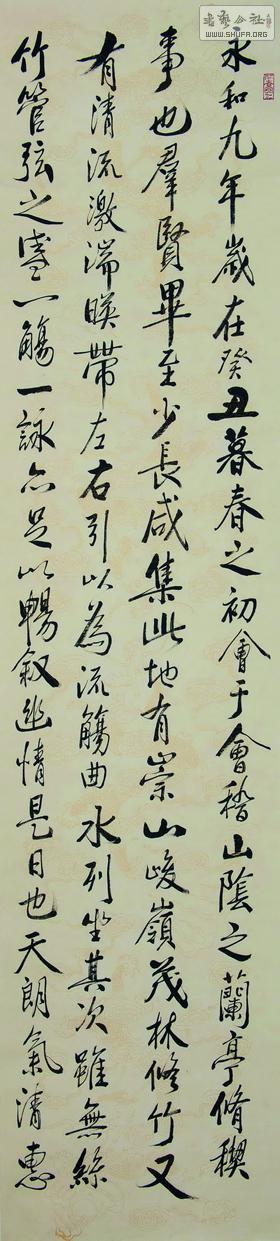 永和九年歲在癸丑暮春之初會于會稽山陰之蘭亭脩稧
事也羣賢畢至少長咸集此地有崇山峻嶺茂林脩竹又
有清流激湍暎帶左右引以為流觴曲水列坐其次雖無絲
竹管弦之盛一觴一詠亦足以暢叙幽情是日也天朗氣清惠
WWW.SHUFA.ORG